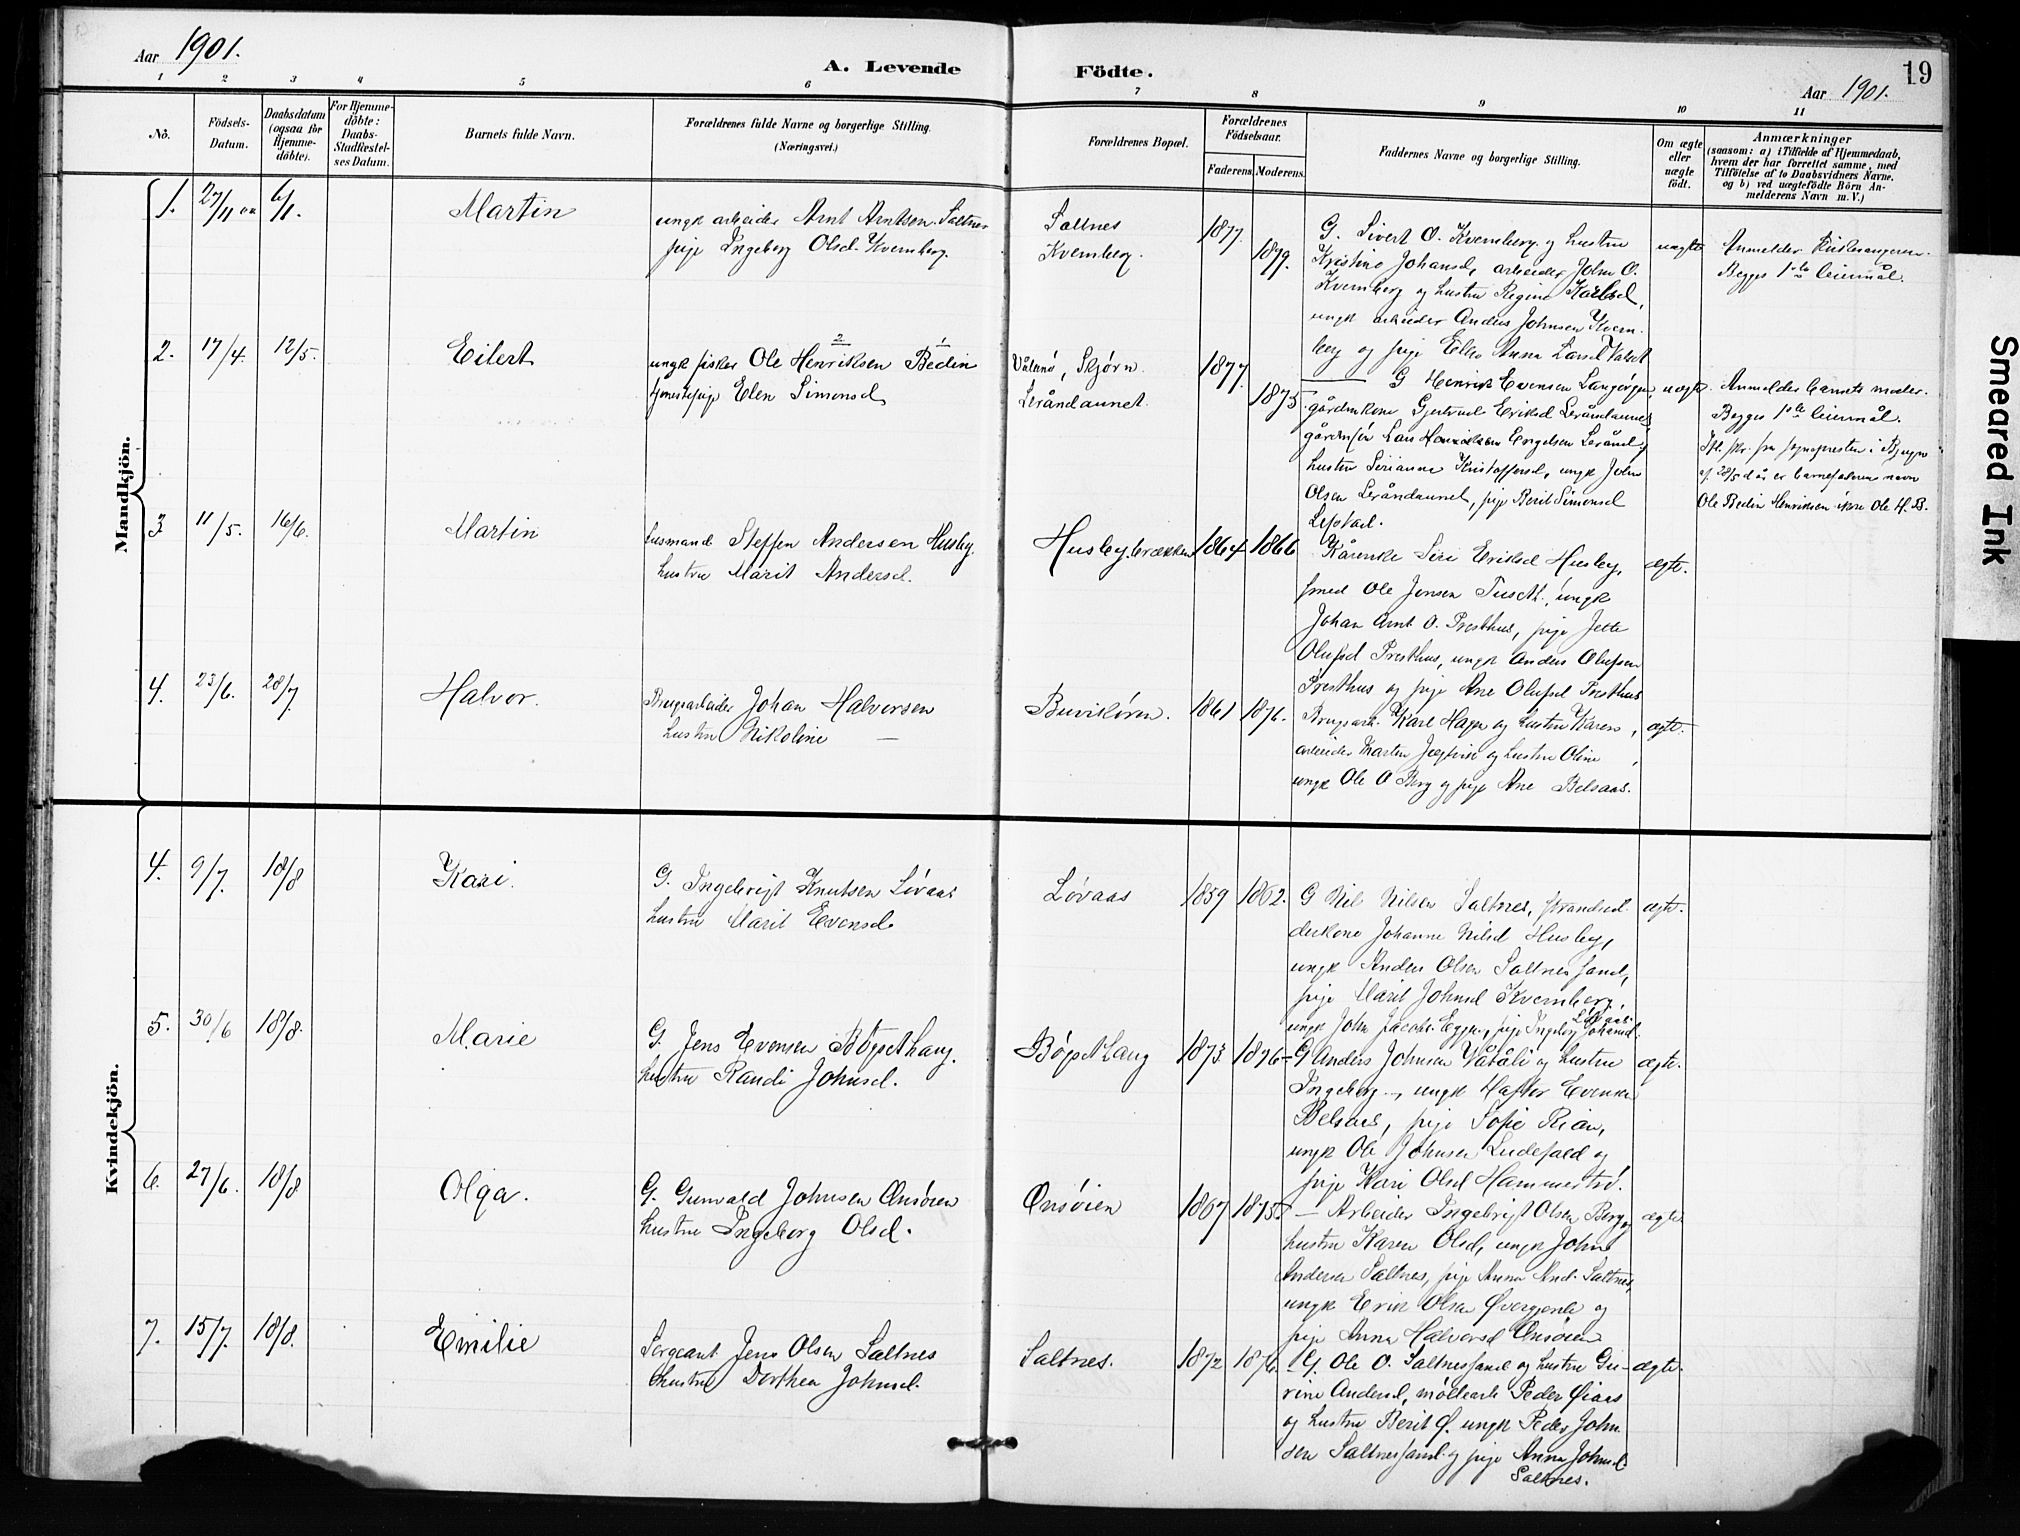 Aar 1901.
A. Levende
Födte.
Aar 1901.
19
1 2 3 4 5 6 7 8 9 10 11
Nö.
Födsels-Datum.
Daabsdatum (ogsaa för Hjemme-döbte).
For Hjemme-döbte: Daabs-Stadfæstel-ses Datum.
Barnets fulde Navn.
Forældrenes fulde Navne og borgerlige Stilling.
(Næringsvei.)
Forældrenes Bopæl.
Forældrenes Födselsaar.
Faderens. Moderens.
Faddernes Navne og borgerlige Stilling.
Om ægte eller uægte födt.
Anmærkninger
(saasom: a) i Tilfælde af Hjemmedaab,
hvem der har forrettet samme, med
Tilföielse af to Daabsvidners Navne,
og b) ved uægtefödte Börn An-
melderens Navn m. V.)
Mandkjön.
1. 27/11 00 6/1. Martin
ungk arbeider Arnt Arntsen Saltnes
pige Ingeberg Olsd. Kvernberg.
Saltnes
Kvernberg.
1877. 1879.
G. Sivert O. Kvernberg og hustru
Kristine Johansd, arbeider John O.
Kvernberg og hustru Regine Karlsd,
ungk arbeider Anders Johnsen Kvern-
berg og pige Anna Larsd
uægte
Anmelder
Begges 1ste leiermål.
2. 17/4. 12/5. Eilert
2 1
ungk fisker Ole Henriksen Bedin
tjenestepige Elen Simonsd
Skjørn
Leråndaunet.
1877. 1875.
G Henrik Evensen
gårdmkone Gjertrud Eriksd Leråndaunet
gårdm Lars Engelsen Leränd,
hustru Serianna Kristoffersd, ungk John
Olsen Leråndaunet, pige Berit Simonsd
uægte
Anmelder barnets moder.
Begges 1ste leiermål.
Ifl. skr. fra sognepresten i Bjugn
af 28/5 d år er barnefaderens navn
Ole Bedin Henriksen ikke Ole H. B.
3 11/5. 16/6. Martin
husmand Steffen Andersen Husby.
hustru Marit Andersd.
Husbybrækken
1864 1866
Kårenke Siri Eriksd Husby,
smed Ole Jensen Tuseth, ungk
Johan Arnt O. Presthus, pige Jette
Olufsd Presthus, ungk Anders Olufsen
Presthus og pige Ane Olufsd Presthus
ægte.
4. 23/6. 28/7. Halvor.
Brugsarbeider Johan Halvorsen
hustru Nikoline —
Buvikøren.
1861 1876.
Brugsarb. Karl Hagen og hustru Karen,
arbeider Martin og hustru Oline,
ungk Ole O Berg og pige Ane Belsaas.
ægte.
Kvindekjön.
4. 9/7. 18/8 Kari.
G. Ingebrigt Knutsen Løvaas
hustru Marit Evensd.
Løvaas
1859 1862.
G Nils Nilsen Saltnes, strandsid-
derkone Johanna Nilsd Husby,
ungk Anders Olsen Saltnessand,
pige Marit Johnsd Kvernberg,
ungk John Jacobs. Eggen, pige Ingeborg Johansd. Løvaas
ægte.
5. 30/6 18/8. Marie
G. Jens Evensen Bøgsethaug.
hustru Randi Johnsd.
Bøgsethaug
1873 1876
G Anders Johnsen Våtåli og hustru
Ingeberg —, ungk Haftor Evensen
Belsaas, pige Sofie Rian,
ungk Ole Johnsen Ludefald og
pige Kari Olsd Hammestrø.
ægte.
6. 27/6. 18/8 Olga.
G. Gunvald Johnsen Onsøien
hustru Ingeborg Olsd.
Onsøien
1867 1875
— Arbeider Ingebrigt Olsen Berg og
hustru Karen Olsd, ungk John
Andersen Saltnes, pige Anna And. Saltnes,
ungk Erik Olsen Øvergjerde og
pige Anna Halvorsd Onsøien
ægte
7. 15/7. 18/8. Emilie
Sergeant Jens Olsen Saltnes
hustru Dorthea Johnsd.
Saltnes.
1872 1876.
G. Ole O. Saltnessand og hustru Gu-
rine Andersd, Peder Øiaas
og hustru Berit Ø. ungk Peder John
sen Saltnessand og pige Anna Johnsd.
Saltnes.
ægte.
Smeared Ink